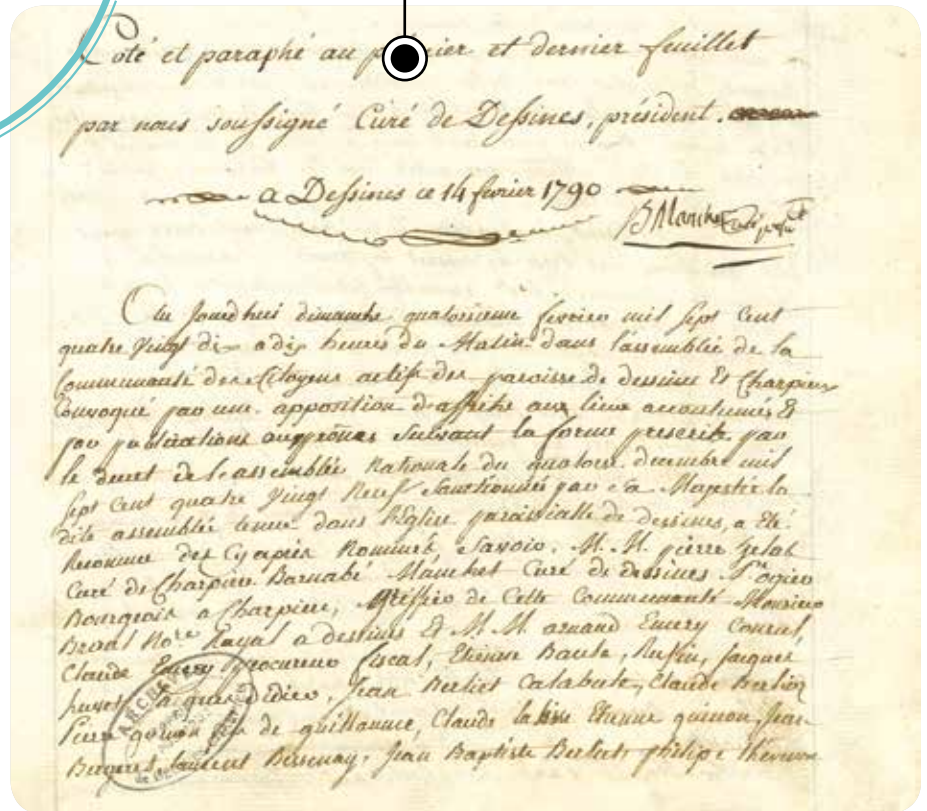 Coté et paraphé au premier et dernier feuillet
par nous soussigné Curé de Dessines, président.
a Dessines ce 14 fevrier 1790
B Manchet Curé
Ce Jourdhui dimanche quatorsieme fevrier mil sept Cent
quatre Vingt dix a dix heures du Matin dans l'assemblée de la
Communauté des Citoyens actifs des paroisse de dessines Et Charpieux
Convoqué par une apposition d'affiche aux lieux accoutumés &
par publications aux prônes Suivant la forme prescrite par
le decret de l'assemblée Nationale du quatorze decembre mil
sept Cent quatre Vingt Neuf Sanctionnés par Sa Majesté la
dite assemblée tenue dans l'Eglise paroissialle de dessines, a Eté
Reconnue des Cyaprès Nommés, Savoir. M. M. pierre
Curé de Charpieux Barnabé Manchet Curé de dessines Sr ogier
Bourgeois a Charpieux, Greffier de Cette Communauté Monsieur
Nore Royal a dessines Et M. M. arnaud Emery Consul,
Claude Emery procureur fiscal, Etienne Jacques
Didier, Jean Berliet Claude Berlioz
Pierre quinon de guillaume, Claude Etienne quinon, Jean
Laurent Jean Baptiste philipe Thevenon
ARCHIVES